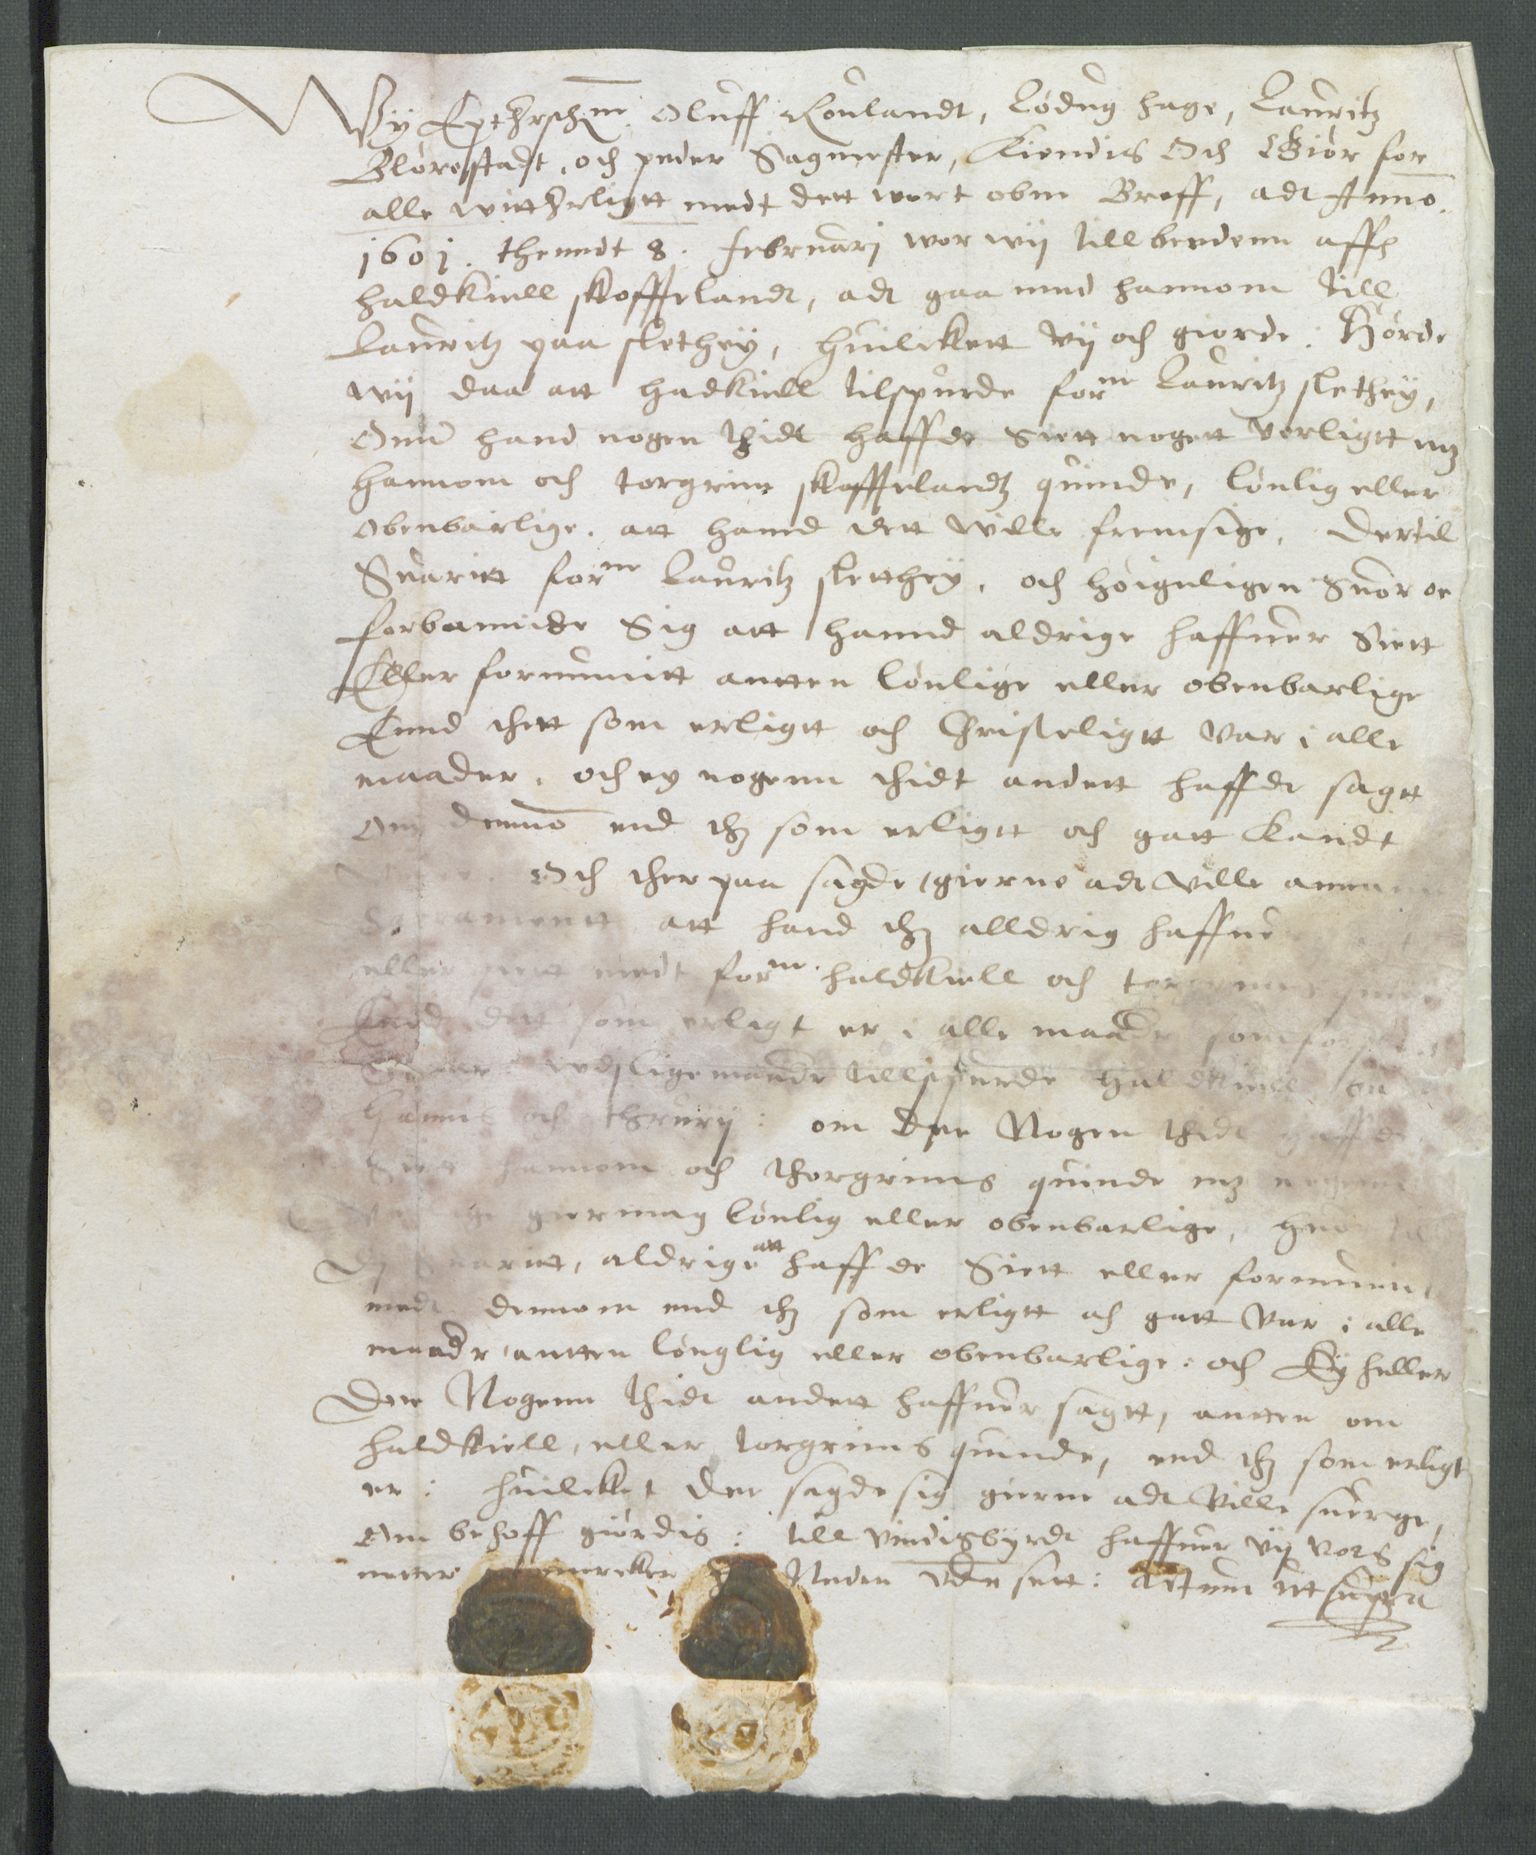 Wy Epthrschne Oluff Roulandt, Lodug hage, Lauritz
Blorestadt, och peder Sagmester, Kiendis Och Giør for
alle witherligtt medt dett wort obne Breff, adt Anno
1601. thenndt 8. februarj wor wij till bedenn aff
haldkiell skofflandt, adt gaa med hannom till
Lauritz paa slethey, huilckett vij och giorde: Hørde
wij daa att hadkiell tilspurde forne Lauritz slethey,
Om hand nogen thidt haffde Siett nogett verligtt mz
hannom och torgrim skofflandtz quinde, lønlig eller
obenbarlige. att hand dett wille fremsige, dertil
Suaritt forne Lauritz sletthey, och høigeligen Suor oc
forbannide Sig att hannd aldrige haffuer Siett
Eller fornumitt antten lønlige eller obenbarlige
Ennd thett som erligtt och Christeligtt var i alle
maader, och ey nogenn thidt andett haffde sagtt
Om dennom end thz som erligtt och gott kandt
Och ther paa sagde gierne adt ville
Sacramentt att hand thz alldrig haffue
eller medt forne haldkiell och
Ennd dett som erligt er i alle maade som
tillspurde Haldkiell
Hanns och om der Nogen thidt haffde
hannom och thorgrims quinde mz
lønlig eller obenbarlige,
aldrige att haffde Siett eller fornumi
medt dennom end thz som erligtt och gott var i alle
maadr antten lønglig eller obenbarlige: och Ey heller
Der Nogenn thidt andett haffuer sagtt, antten om
haldkiell, eller torgrims quinde, end thz som erligt
er: huilcket der sagde sig gierne adt ville suerge,
om behoff giørdis: till vindisbyrdt haffuer vij vors sig
netter Neden vnde sett: Actum ut supra